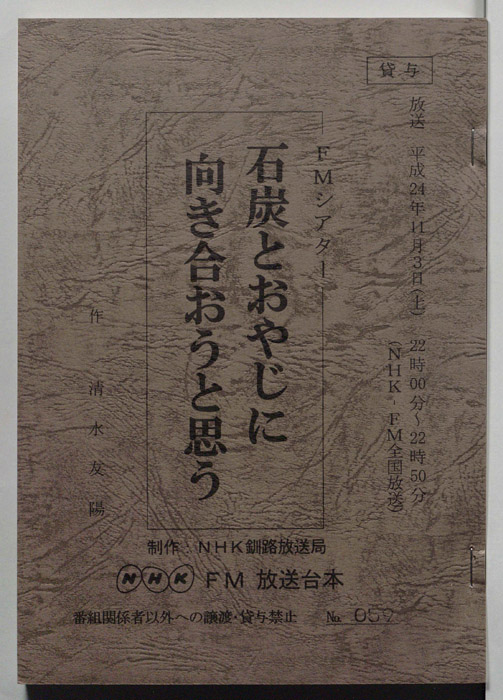 貸与
放送 平成24年11月3日(土) 22時00分〜22時50分
(NHK-FM全国放送)
FMシアター
石炭とおやじに
向き合おうと思う
作 清水友陽
制作:NHK釧路放送局
NHK FM 放送台本
番組関係者以外への譲渡・貸与禁止 № 059